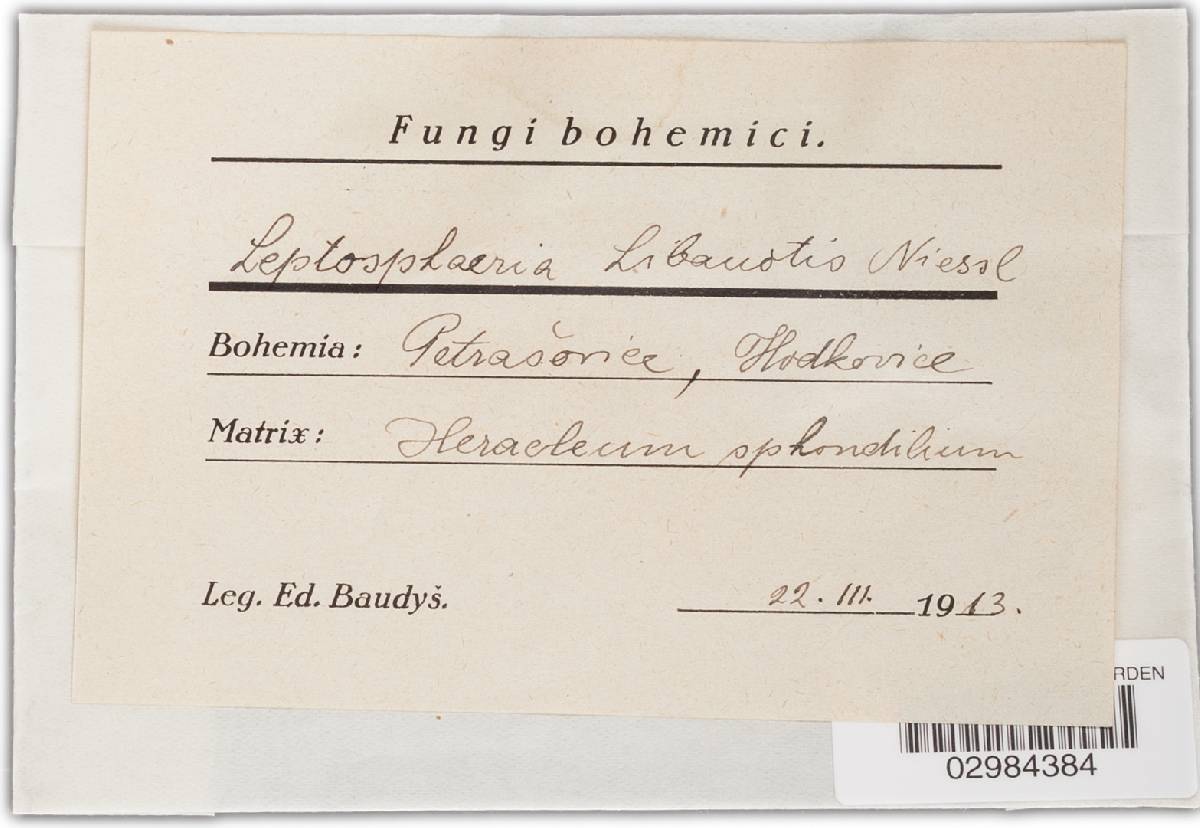 Fungi bohemici.
Leptosphaeria Libanotis Niessl
Bohemia: Petrašovice, Hodkovice
Matrix: Heracleum sphondilium
Leg. Ed. Baudyš. 22. III. 1913.
RDEN
02984384